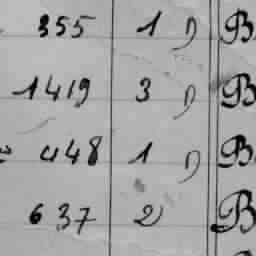 355 1 " B
1419 3 " B
448 1 " B
637 2 B